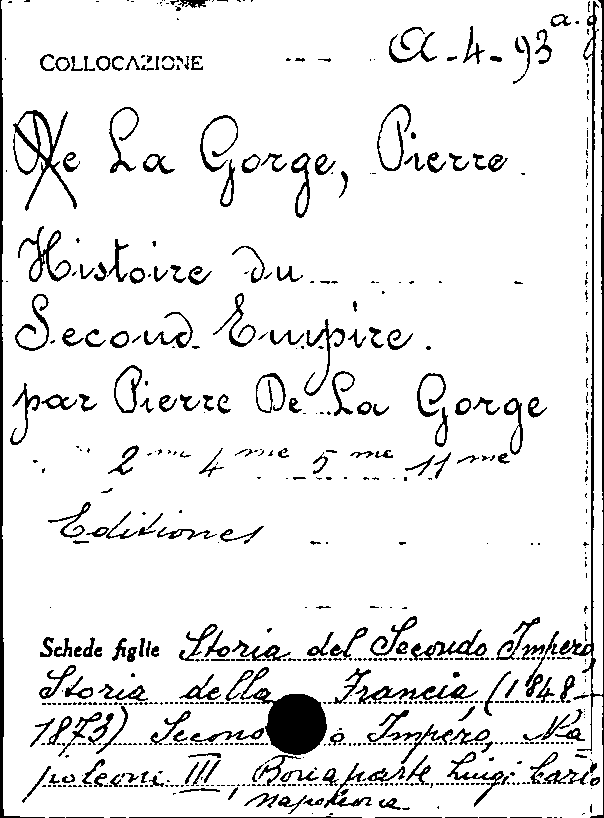 COLLOCAZIONE A-4-93 a.g
De La Gorge, Pierre
Histoire du
Second Empire.
par Pierre De La Gorge
2me 4me 5me 11me
Editiones
Schede figlie Storia del Secondo Impero,
Storia della Francia, (1848-
1873) Secondo Impero, Na
poleone III, Bonaparte, Luigi Carlo
Napoleone